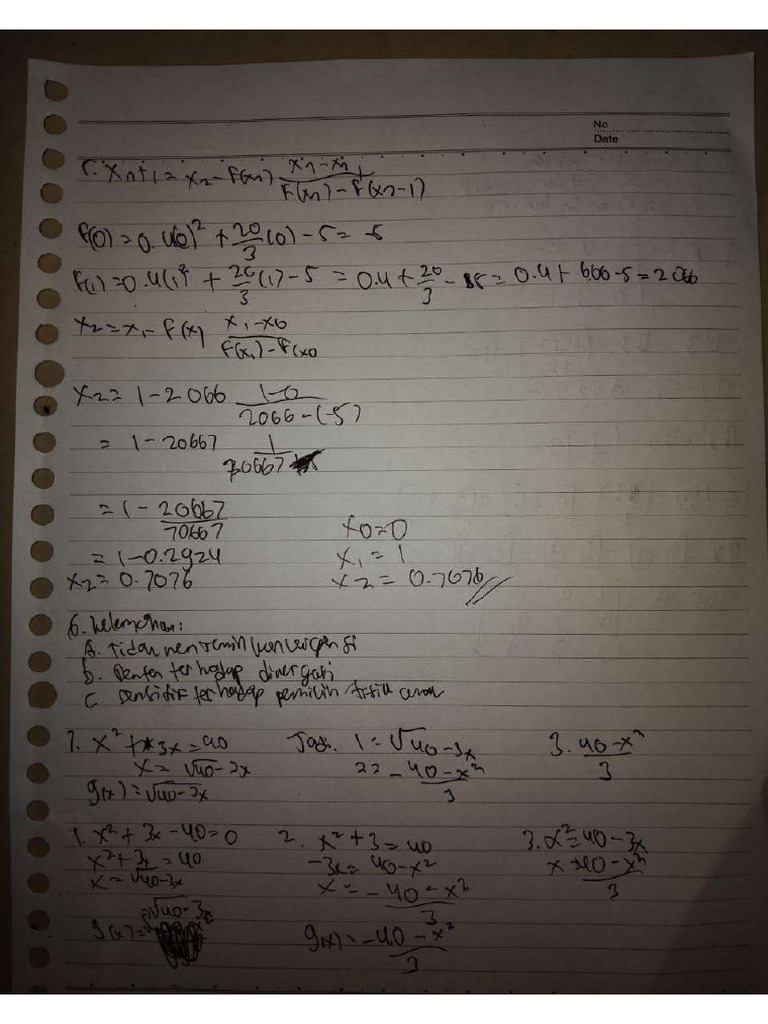 No
Date
5. xn+1 = xn - f(xn) xn - xn-1 / f(xn) - f(xn-1)
f(0) = 0.4(0)² + 20/3 (0) - 5 = -5
f(1) = 0.4(1)² + 20/3 (1) - 5 = 0.4 + 20/3 - 5 = 0.4 + 6.66 - 5 = 2066
x2 = x1 - f(x1) x1 - x0 / f(x1) - f(x0
x2 = 1 - 2066 1-0 / 2066 - (-5)
= 1 - 20667 1 / 70667
= 1 - 20667 / 70667
x0 = 0
= 1 - 0.2924
x1 = 1
x2 = 0.7076
x2 = 0.7076
6. kelemahan:
A. tidak menjamin konvergensi
b. Rentan terhadap divergensi
c. sensitif terhadap pemilihan titik awal
7. x² + 3x = 40
x = √40 - 3x
g(x) = √40 - 3x
Jadi. 1 = √40 - 3x
2 = - 40 - x² / 3
3. 40 - x² / 3
1. x² + 3x - 40 = 0
x² + 3x = 40
x = √40 - 3x
= √40 - 3x
g(x) =
2. x² + 3 = 40
-3x = 40 - x²
x = - 40 - x² / 3
g(x) = - 40 - x² / 3
3. x² = 40 - 3x
x = 40 - x² / 3